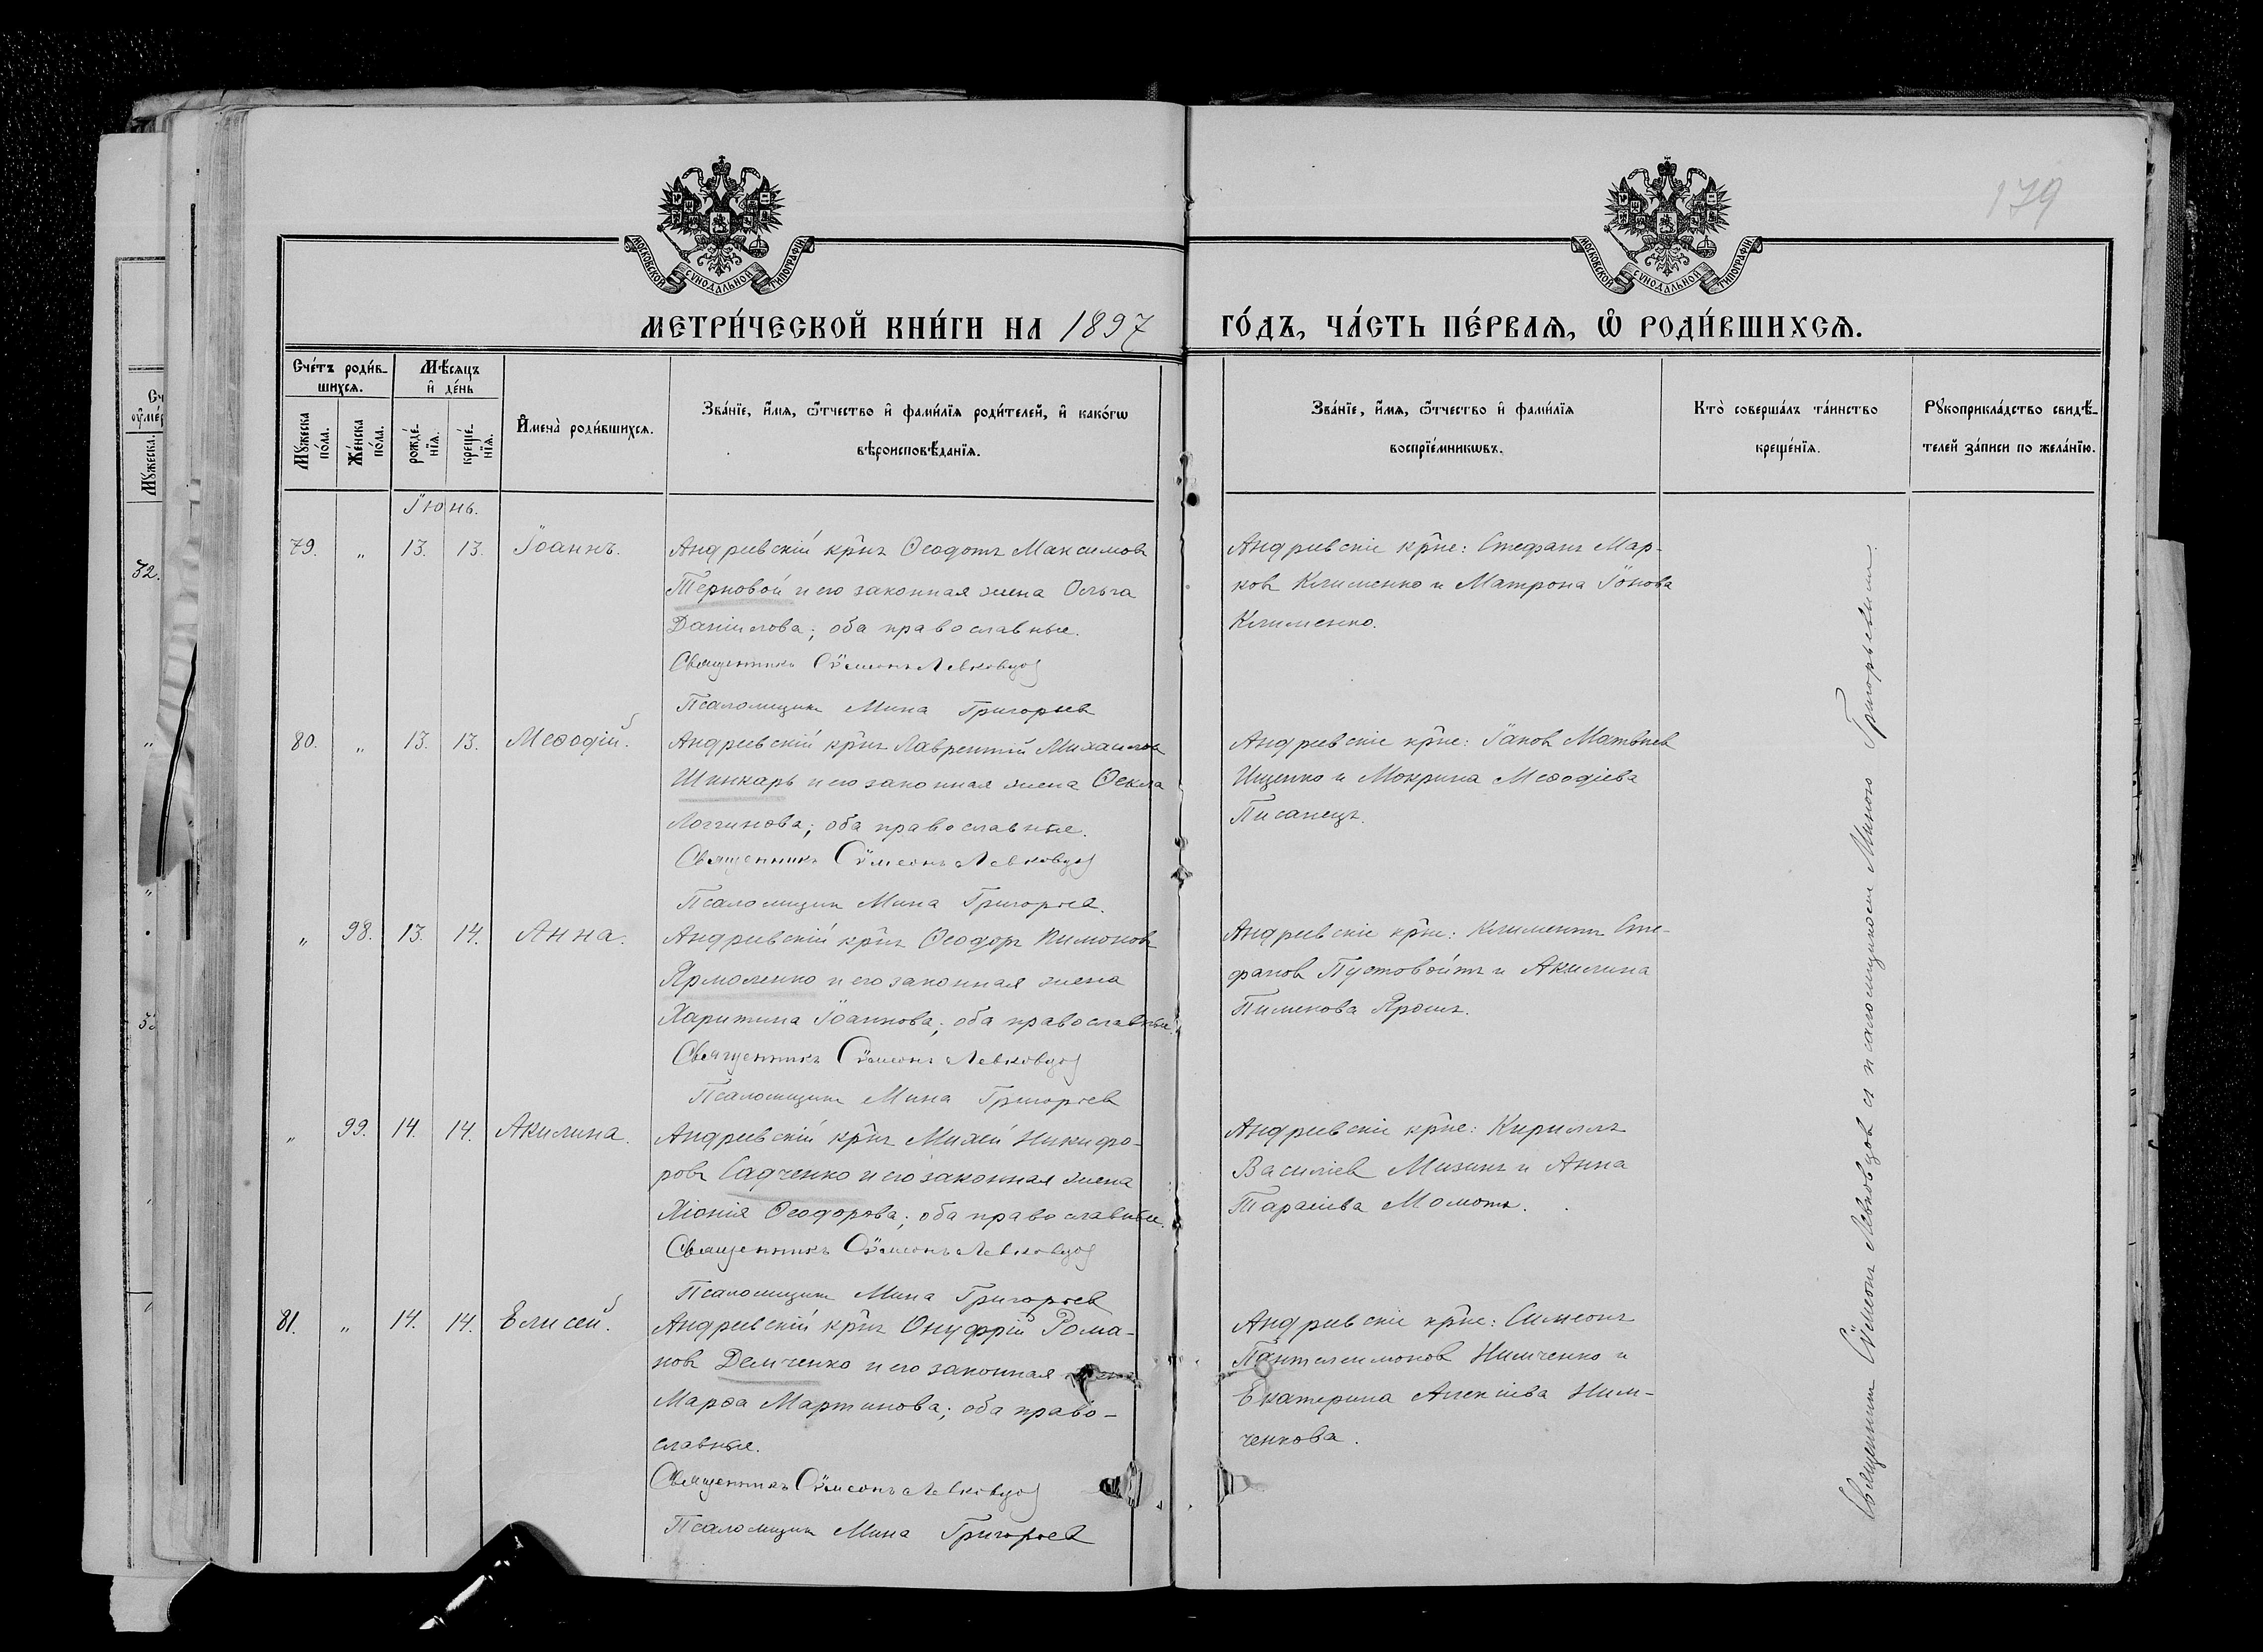 179
МОСКОВСКОЙ СѴНОДАЛЬНОЙ ТИПОГРАФІИ
МОСКОВСКОЙ СѴНОДАЛЬНОЙ ТИПОГРАФІИ
МЕТРИ́ЧЕСКОЙ КНИ́ГИ НА 1897 ГО́ДЪ, ЧА́СТЬ ПЕ́РВАѦ, Ѽ РОДИ́ВШИХСѦ.
Сче́тъ роди́в-
шихсѧ.
Мѣ́сѧцъ
и҆ де́нь
Мꙋжеска по́ла.
Же́нска по́ла.
рожде́-
нїѧ.
креще́-
нїѧ.
И҆мена̀ роди́вшихсѧ.
Зва́нїе, и҆́мѧ, ѻ҆́тчество и҆ фами́лїѧ роди́телей, и҆ како́гѡ
вѣроисповѣ́данїѧ.
Зва́нїе, и҆́мѧ, ѻ҆́тчество и҆ фами́лїѧ
воспрїе́мникѡвъ.
Кто̀ соверша́лъ та́инство
креще́нїѧ.
Рꙋкоприкла́дство свидѣ́-
телей за́писи по жела́нїю.
Іюнь.
79. „ 13. 13. Іоаннъ.
Андреевскій кр̃нъ Ѳеодотъ Максимовъ
Терновой и его законная жена Ольга
Даніилова; оба православные.
Священникъ Сѷмеонъ Левковцов
Псаломщик Мина Григорьев
Андреевскіе кр̃не: Стефанъ Мар-
ковъ Клименко и Матрона Іонова
Клименко.
80. „ 13. 13. Меѳодій.
Андреевскій кр̃нъ Лаврентій Михаиловъ
Шинкарь и его законная жена Ѳекла
Логгинова; оба православные.
Священникъ Сѷмеонъ Левковцов
Псаломщик Мина Григорьев.
Андреевскіе кр̃не: Іаковъ Матвѣев
Ищенко и Мокрина Меѳодіева
Писанецъ.
„ 98. 13. 14. Анна.
Андреевскій кр̃нъ Ѳеодоръ Пимоновъ
Ярмоленко и его законная жена
Харитина Іоаннова; оба православные.
Священникъ Сѷмеонъ Левковцов
Псаломщик Мина Григорьев
Андреевскіе кр̃не: Климентъ Сте-
фановъ Пустовойтъ и Акилина
Пименова Ярошъ.
„ 99. 14. 14. Акилина.
Андреевскій кр̃нъ Михей Никифо-
ровъ Садченко и его законная жена
Хіонія Ѳеодорова; оба православные.
Священникъ Сѷмеонъ Левковцов
Псаломщик Мина Григорьев
Андреевскіе кр̃не: Кириллъ
Василіев Мизинъ и Анна
Тарасіева Момотъ.
81. „ 14. 14. Елисей.
Андреевскій кр̃нъ Онуфрій Рома-
новъ Демченко и его законная жена
Марѳа Мартинова; оба право-
славные.
Священникъ Сѷмеонъ Левковцов
Псаломщик Мина Григорьев
Андреевскіе кр̃не: Симеонъ
Пантелеимонов Нимченко и
Екатерина Алексіева Ним-
ченкова.
Священникъ Сѷмеонъ Левковцовъ съ псаломщикомъ Миною Григорьевымъ.